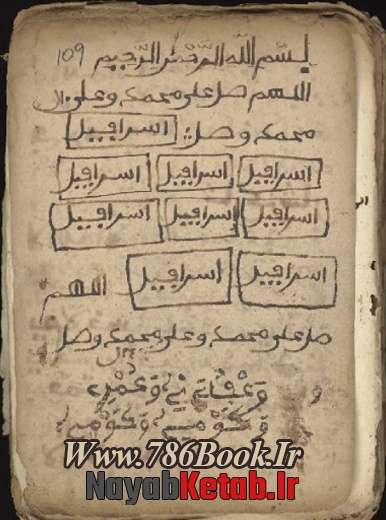 109 بسم الله الرحمن الرحيم
اللهم صل على محمد وعلى ال
محمد وصل اسرافيل
اسرافيل اسرافيل اسرافيل
اسرافيل اسرافيل اسرافيل
اسرافيل اسرافيل اللهم
صل على محمد وعلى محمد وصل
Www.786Book.Ir
NayabKetab.Ir